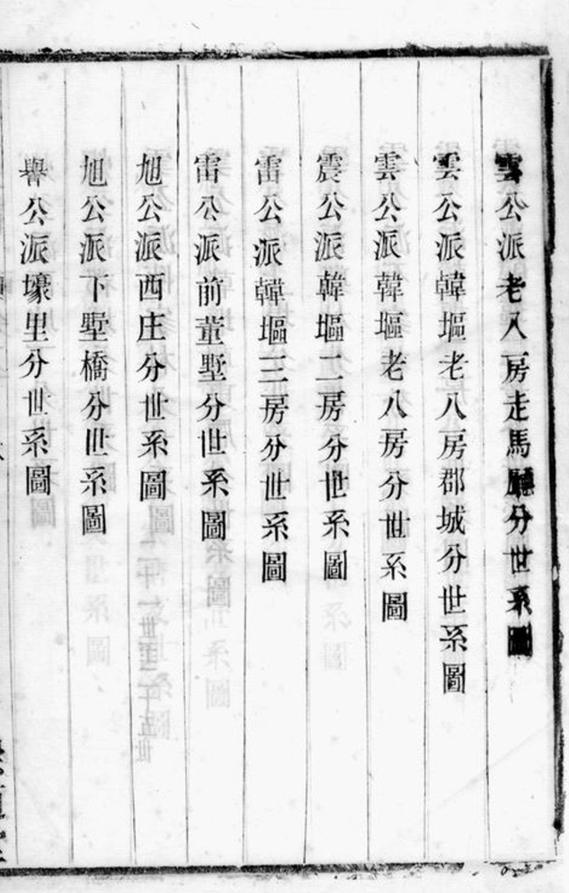 雲公派老八房走馬廳分世系圖
雲公派韓塸老八房郡城分世系圖
雲公派韓塸老八房分世系圖
震公派韓塸二房分世系圖
雷公派韓塸三房分世系圖
雷公派前董墅分世系圖
旭公派西庄分世系圖
旭公派下墅橋分世系圖
譽公派壕里分世系圖